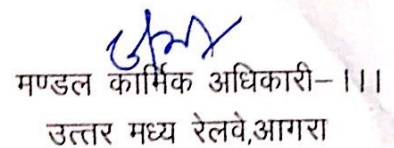 मण्डल कार्मिक अधिकारी–।।।
उत्तर मध्य रेलवे,आगरा